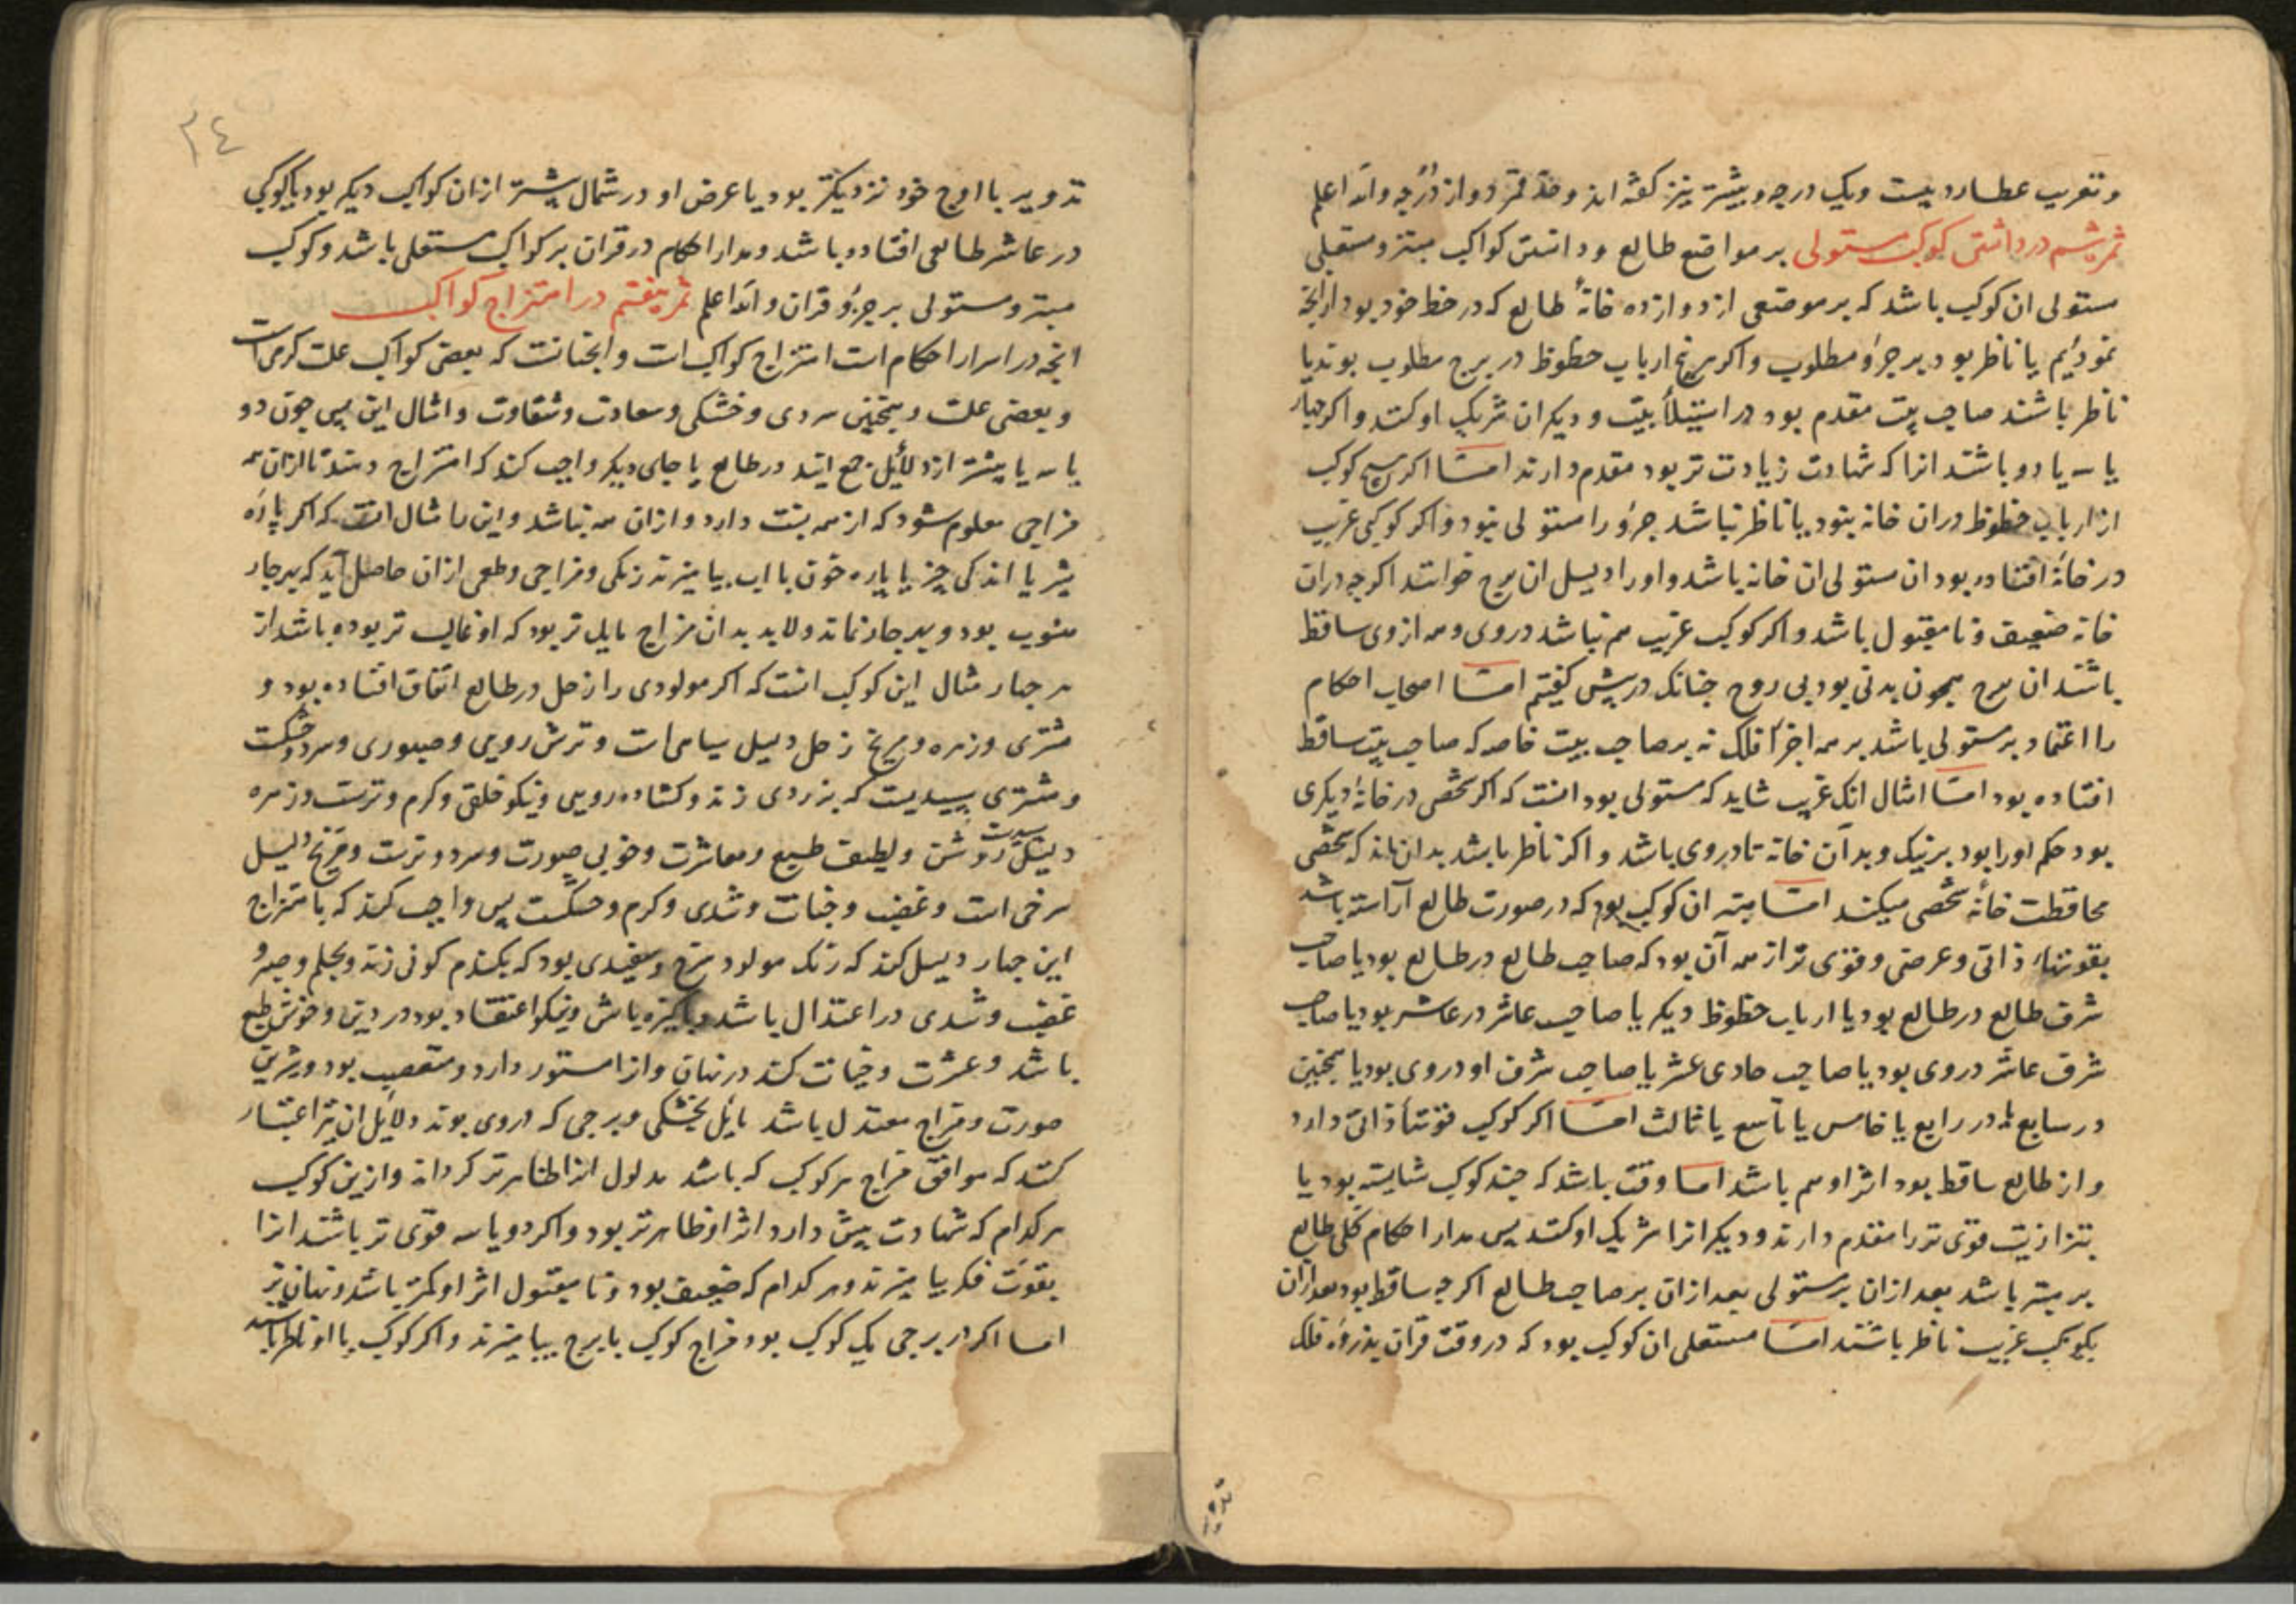 و تعریب عطارد بیست ویک درجه و بیشتر نیز کفته اند و حد قمر دوازده درجه والله اعلم
ثمره ششم در دانستن کوکب مستولی بر مواضع طالع و دانستن کواکب مبتز و مستعلی
مستولی ان کوکب باشد که بر موضعی از دوازده خانهٔ طالع که در خط خود بود از انجه
نمودیم یا ناظر بود بر جزؤ مطلوب و اکر ارباب حظوظ در برج مطلوب بوند یا
ناظر باشند صاحب بیت مقدم بود در استیلأ بیت و دیکران شریک او کنند و اکر جهار
یا سه یا دو باشند انرا که شهادت زیادت تر بود مقدم دارند امّا اکر هیچ کوکب
از ارباب حظوظ دران خانه نبود یا ناظر نباشد جزؤ را مستولی نبود و اکر کوکبی غریب
در خانهٔ افتاده بود ان مستولی ان خانه باشد و او را دلیل ان برج خوانند اکرجه دران
خانه ضعیف و نا مقبول باشد و اکر کوکب غریب هم نباشد در وی و همه از وی ساقط
باشند ان برج همجون بدنی بود بی روح جنانک در پیش کفتیم امّا اصحاب احکام
را اعتماد بر مستولی باشد بر همه اجزأ فلک نه بر صاحب بیت خاصه که صاحب بیت ساقط
افتاده بود امّا امثال انک غریب شاید که مستولی بود انست که اکر شخصی در خانهٔ دیکری
بود حکم او را بود بر نیک و بد آن خانه تا در وی باشد و اکر ناظر باشد بدان ماند که شخصی
محافظت خانهٔ شخصی میکند امّا مبتز ان کوکب بود که در صورت طالع آراسته باشد
بقوتهاء ذاتی و عرضی و قوی تر از همه آن بود که صاحب طالع در طالع بود یا صاحب
شرف طالع در طالع بود یا ارباب حظوظ دیکر یا صاحب عاشر در عاشر بود یا صاحب
شرف عاشر در وی بود یا صاحب حادی عشر یا صاحب شرف او در وی بود یا همجنین
در سابع یا در رابع یا خامس یا تاسع یا ثالث امّا اکر کوکب قوتهأ ذاتی دارد
و از طالع ساقط بود اثر او هم باشد امّا وقت باشد که جند کوکب شایسته بود یا
بتزازیت قوی تر را مقدم دارند و دیکرانرا شریک او کنند پس مدار احکام کلی طالع
بر مبتز باشد بعد ازان بر مستولی بعد ازان بر صاحب طالع اکرجه ساقط بود بعد ازان
بکوکب غریب ناظر باشند امّا مستعلی ان کوکب بود که در وقت قران بذروهٔ فلک
٢٤
تدویر یا اوج خود نزدیکتر بود یا عرض او در شمال بیشتر ازان کواکب دیکر بود یا کوکبی
در عاشر طالعی افتاده باشد و مدار احکام در قران بر کواکب مستعلی باشد و کوکب
مبتز و مستولی بر جزؤ قران والله اعلم ثمره هفتم در امتزاج کواکب
انجه در اسرار احکام است امتزاج کواکب است و انجنانست که بعضی کواکب علت کرمی است
و بعضی علت و همجنین سردی و خشکی و سعادت و شقاوت و امثال این پس جون دو
یا سه یا بیشتر از دلائل جمع ایند در طالع یا جای دیکر واجب کند که امتزاج دهند تا ازان همه
مزاجی معلوم شود که از همه نسبت دارد و ازان همه نباشد و این را مثال انست که اکر پارهٔ
شیر یا اندکی چیز یا پاره خون با اب بیامیزند رنکی و مزاجی و طعمی ازان حاصل آید که بهر جار
منسوب بود و بهر جار نماند و لابد بدان مزاج مایل تر بود که او غالب تر بوده باشد از
هر جهار مثال این کوکب انست که اکر مولودی را زحل در طالع اتفاق افتاده بود و
مشتری و زهره و مریخ زحل دلیل سیاهی است و ترش رویی و صبوری و سرد و خشکست
و مشتری سپیدیست که بزردی زند و کشاده رویی و نیکو خلقی و کرم و ترست و زهره
دلیل سپیدست روشن و لطیف طبع و معاشرت و خوبی صورت و سرد و ترست و مریخ دلیل
سرخی است و غضب و خیانت و تندی و کرم و خشکست پس واجب کند که بامتزاج
این جهار دلیل کند که رنک مولود سرخ و سفیدی بود که بکندم کونی زند و بحلم و صبر و
غضب و تندی در اعتدال باشد و پاکیزه باش و نیکو اعتقاد بود در دین و خوش طبع
باشد و عشرت و خیانت کند در نهان و انرا مستور دارد و متعصب بود و شیرین
صورت و مزاج معتدل باشد مایل بخشکی و برجی که در وی بوند دلایل ان نیز اعتبار
کنند که موافق مزاج هر کوکب که باشد مدلول انرا ظاهر تر کرداند و ازین کوکب
هر کدام که شهادت بیش دارد اثر او ظاهر تر بود و اکر دو یا سه قوی تر باشند انرا
بقوّت فکر بیامیزند و هر کدام که ضعیف بود و نا مقبول اثر او کمتر باشد و نهان تر
امّا اکر در برجی یک کوکب بود مزاج کوکب با برج بیامیزند و اکر کوکب با او ناظر باشد